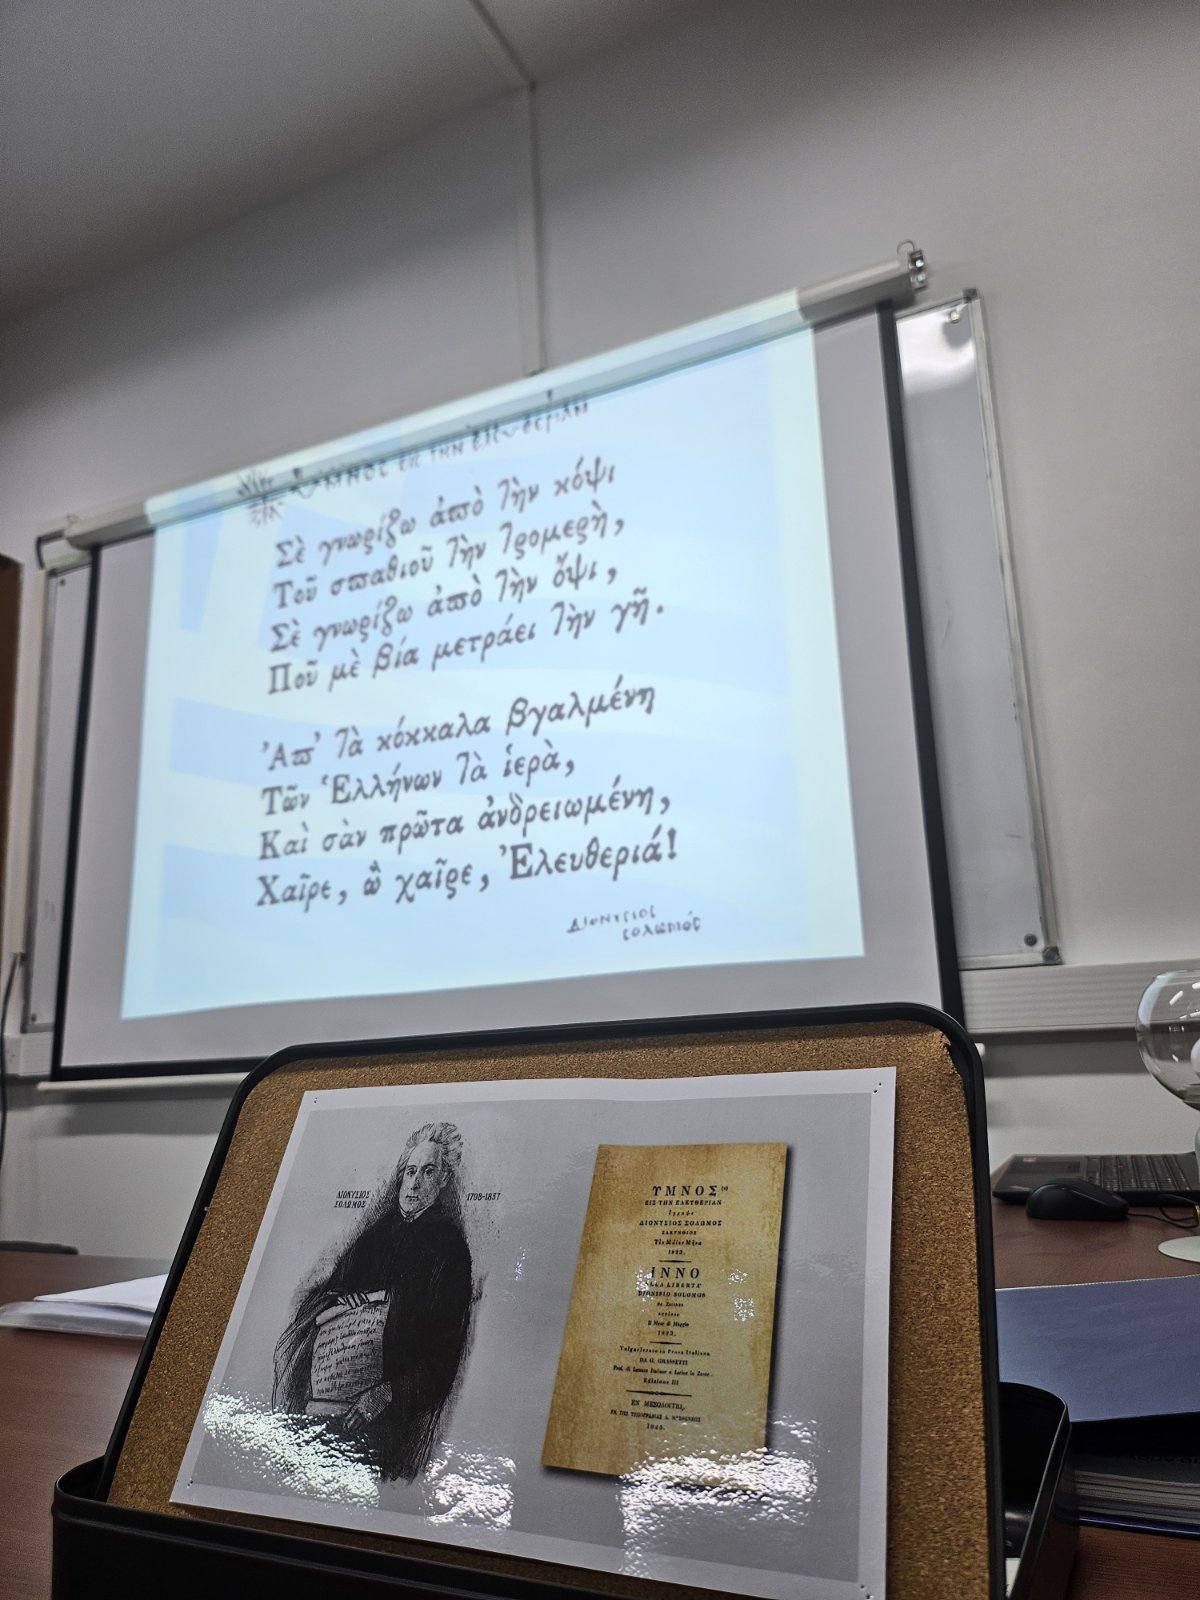 ὝΜΝΟΣ ΕΙΣ ΤΗΝ ἘΛΕΥΘΕΡΙΑΝ
Σὲ γνωρίζω ἀπὸ τὴν κόψι
Τοῦ σπαθιοῦ τὴν τρομερὴ,
Σὲ γνωρίζω ἀπὸ τὴν ὄψι,
Ποῦ μὲ βία μετράει τὴν γῆ.
Ἀπ' τὰ κόκκαλα βγαλμένη
Τῶν Ἑλλήνων τὰ ἱερὰ,
Καὶ σὰν πρῶτα ἀνδρειωμένη,
Χαῖρε, ὢ χαῖρε, Ἐλευθεριά!
ΔΙΟΝΥΣΙΟΣ
ΣΟΛΩΜΟΣ
ΔΙΟΝΥΣΙΟΣ
ΣΟΛΩΜΟΣ
1798-1857
ΥΜΝΟΣ
ΕΙΣ ΤΗΝ ΕΛΕΥΘΕΡΙΑΝ
ἔγραψε
ΔΙΟΝΥΣΙΟΣ ΣΟΛΩΜΟΣ
ΖΑΚΥΝΘΙΟΣ
Τὸν Μάϊον Μῆνα
1823.
INNO
ALLA LIBERTA'
DIONISIO SOLOMOS
da Zacinto
scrisse
Il Mese di Maggio
1823.
Volgarizzato in Prosa Italiana
DA G. GRASSETTI
Prof. di Lettere Italiane e Latine in Zante
Edizione III
ΕΝ ΜΕΣΟΛΟΓΓΙῼ,
ΕΚ ΤΗΣ ΤΥΠΟΓΡΑΦΙΑΣ Δ. ΜΕΣΘΕΝΕΟΣ
1825.